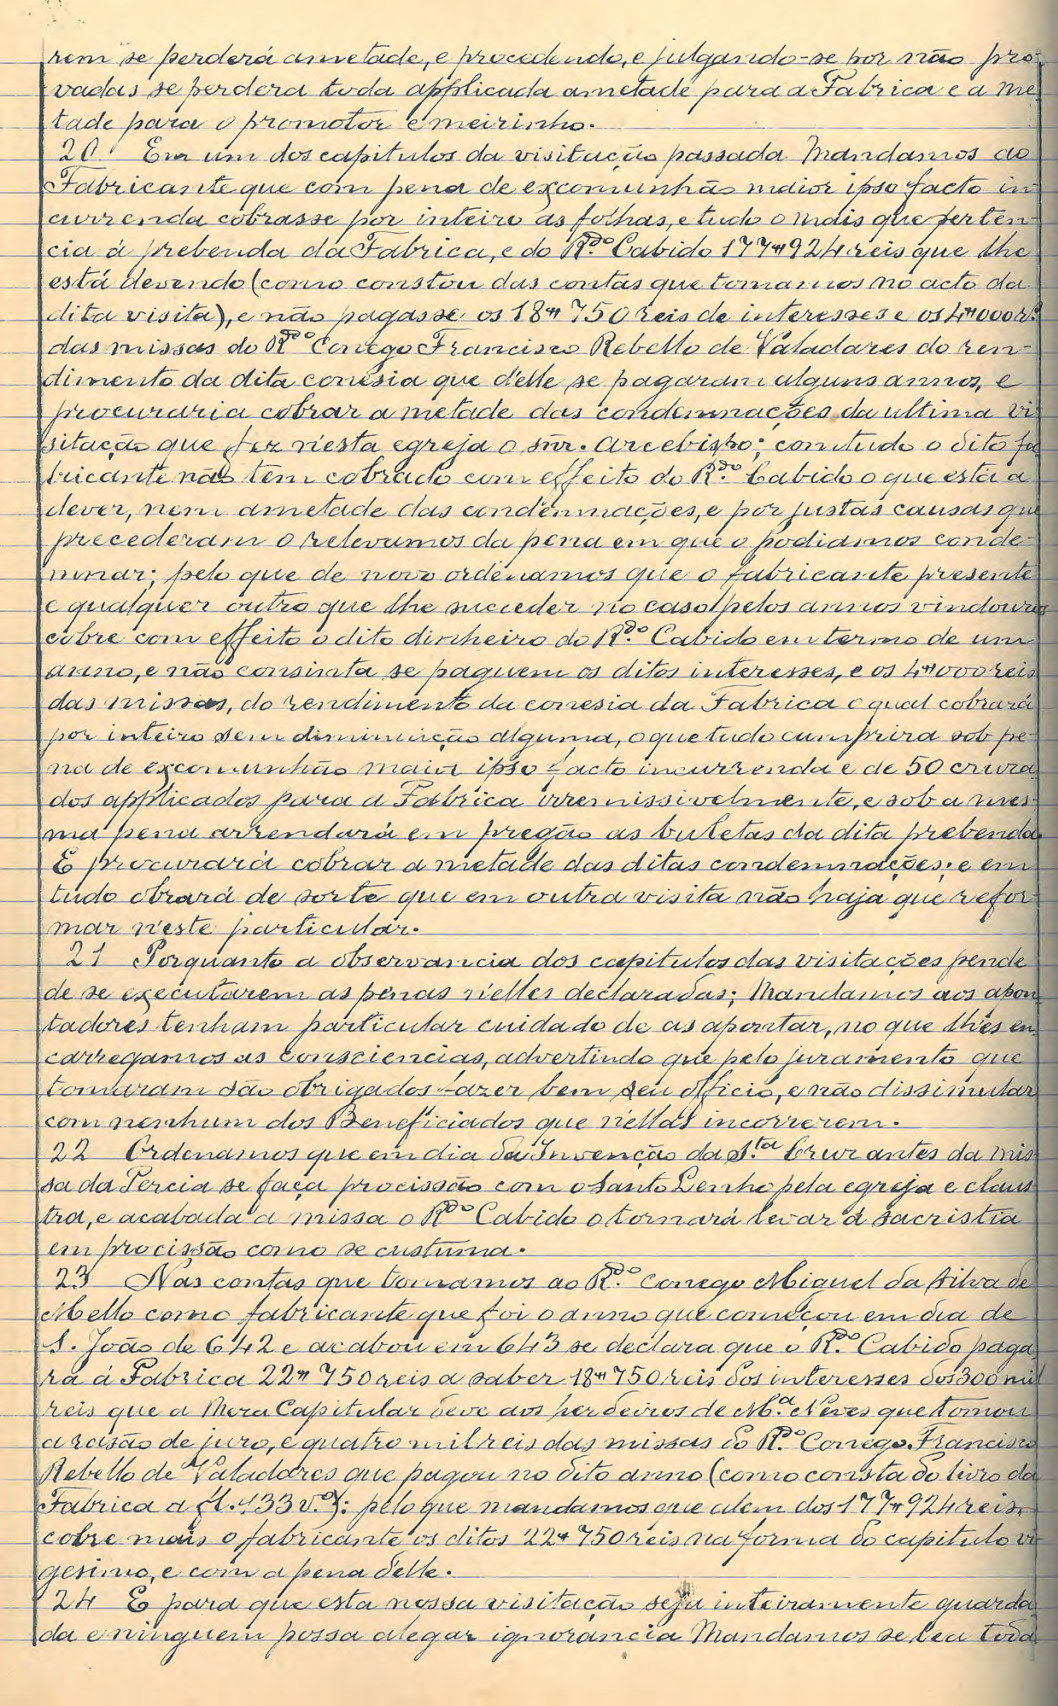 rem se perderá ametade, e procedendo, e julgando-se por não pro-
vadas se perdera toda applicada ametade para a Fabrica e a me
tade para o promotor e meirinho.
20 Em um dos capitulos da visitação passada Mandamos ao
Fabricante que com pena de excomunhão maior ipso facto in
currenda cobrasse por inteiro as folhas, e tudo o mais que perten-
cia á prebenda da Fabrica, e do R.do Cabido 177#924 reis que lhe
está devendo (como constou das contas que tomamos no acto da
dita visita), e não pagasse os 18#750 reis de interesses e os 4#000 r.s
das missas do R.do Conego Francisco Rebello de Valadares do ren-
dimento da dita conesia que d'elle se pagaram alguns annos, e
procuraria cobrar a metade das condemnações da ultima vi
sitação que fez n'esta egreja o snr. Arcebispo; comtudo o dito fa
bricante não tem cobrado com effeito do R.do Cabido o que está a
dever, nem ametade das condemnações, e por justas causas que
precederam o relevamos da pena em que o podiamos conde-
mnar; pelo que de novo ordenamos que o fabricante presente
e qualquer outro que lhe succeder no caso pelos annos vindouros
cobre com effeito o dito dinheiro do R.do Cabido em termo de um
anno, e não consinta se paguem os ditos interesses, e os 4#000 reis
das missas, do rendimento da conesia da Fabrica o qual cobrará
por inteiro sem diminuição alguma, o que tudo cumprira sob pe-
na de excomunhão maior ipso facto incurrenda e de 50 cruza
dos applicados para a Fabrica irremissivelmente, e sob a mes-
ma pena arrendará em pregão as buletas da dita prebenda
E procurará cobrar a metade das ditas condemnações; e em
tudo obrará de sorte que em outra visita não haja que refor-
mar n'este particular.
21 Porquanto a observancia dos capitulos das visitações pende
de se executarem as penas n'elles declaradas; Mandamos aos apon
tadores tenham particular cuidado de as apontar, no que lhes en
carregamos as consciencias, advertindo que pelo juramento que
tomaram são obrigados fazer bem seu officio, e não dissimular
com nenhum dos Beneficiados que n'ellas incorrerem.
22 Ordenamos que em dia da Invenção da S.ta Cruz antes da mis
sa da Tercia se faça procissão com o Santo Lenho pela egreja e claus
tra, e acabada a missa o R.do Cabido o tornará levar á sacristia
em procissão como se custuma.
23 Nas contas que tomamos ao R.do Conego Miguel da Silva de
Mello como fabricante que foi o anno que começou em dia de
S. João de 642 e acabou em 643 se declara que o R.do Cabido paga
rá á Fabrica 22#750 reis a saber 18#750 reis dos interesses dos 300 mil
reis que a Meza Capitular deve aos herdeiros de M.a Neves que tomou
a rasão de juro, e quatro mil reis das missas do R.do Conego Francisco
Rebello de Valadares que pagou no dito anno (como consta do livro da
Fabrica a fl. 133 v.o): pelo que mandamos que alem dos 177#924 reis,
cobre mais o fabricante os ditos 22#750 reis na forma do capitulo vi
gesimo, e com a pena delle.
24 E para que esta nossa visitação seja inteiramente guarda
da e ninguem possa alegar ignorancia Mandamos se lea toda